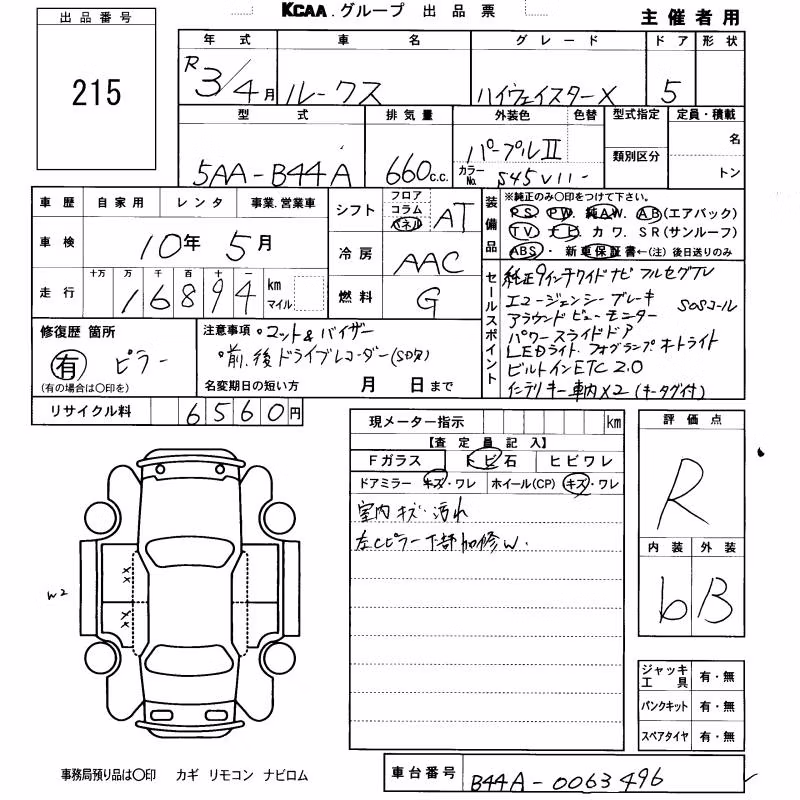 KCAA.グループ 出品票
主催者用
出品番号
215
年式 車名 グレード ドア 形状
R3/4月 ルークス ハイウェイスターX 5
型式 排気量 外装色 色替 型式指定 定員・積載
5AA-B44A 660c.c. パープルII 名
カラーNo. S45V11- 類別区分 トン
車歴 自家用 レンタ 事業.営業車
車検 10年5月
走行 十万 万 千 百 十 一 km マイル
16894
シフト フロア コラム パネル AT
冷房 AAC
燃料 G
装備品 ※純正のみ〇印をつけて下さい。
P.S. P.W. 純A.W. A.B(エアバック)
T.V ナビ カワ. S.R(サンルーフ)
ABS・新車保証書←(注)後日送りのみ
セールスポイント
純正9インチワイドナビ フルセグTV
エマージェンシーブレーキ SOSコール
アラウンドビューモニター
パワースライドドア
LEDライト.フォグランプ オートライト
ビルトインETC2.0
インテリキー車内X2(キータグ付)
修復歴 箇所
有 ピラー
(有の場合は〇印を)
注意事項・マット&バイザー
・前.後ドライブレコーダー(SD欠)
名変期日の短い方 月 日まで
リサイクル料 6560円
現メーター指示 km
【査定員記入】
Fガラス トビ石 ヒビワレ
ドアミラー キズ・ワレ ホイール(CP) キズ・ワレ
室内キズ・汚れ
左Cピラー下部加修W.
評価点
R
内装 外装
b B
W2
XX
XX
ジャッキ工具 有・無
パンクキット 有・無
スペアタイヤ 有・無
事務局預り品は〇印 カギ リモコン ナビロム
車台番号 B44A-0063496